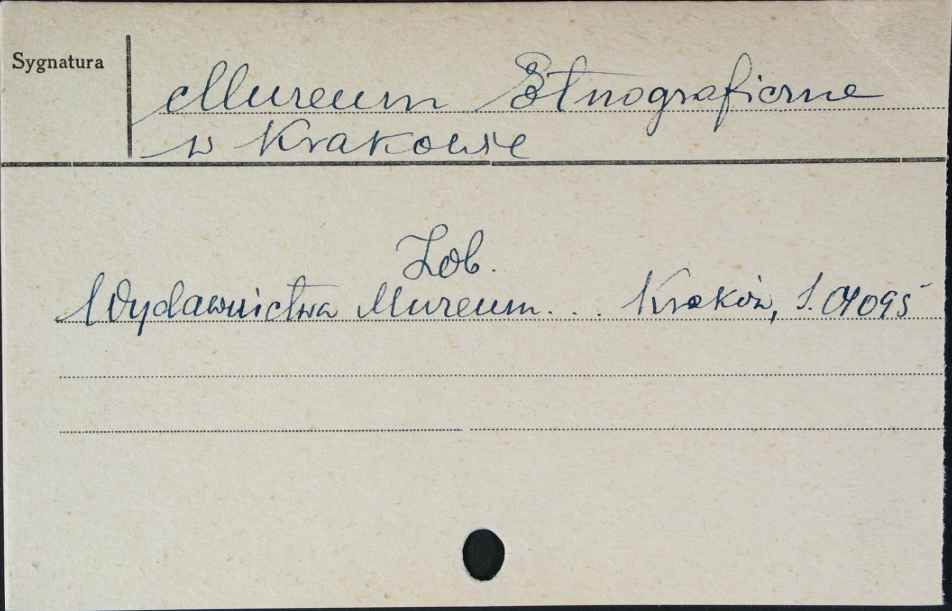 Sygnatura
Muzeum Etnograficzne
w Krakowie
Zob.
Wydawnictwa Muzeum... Kraków, S. 04095